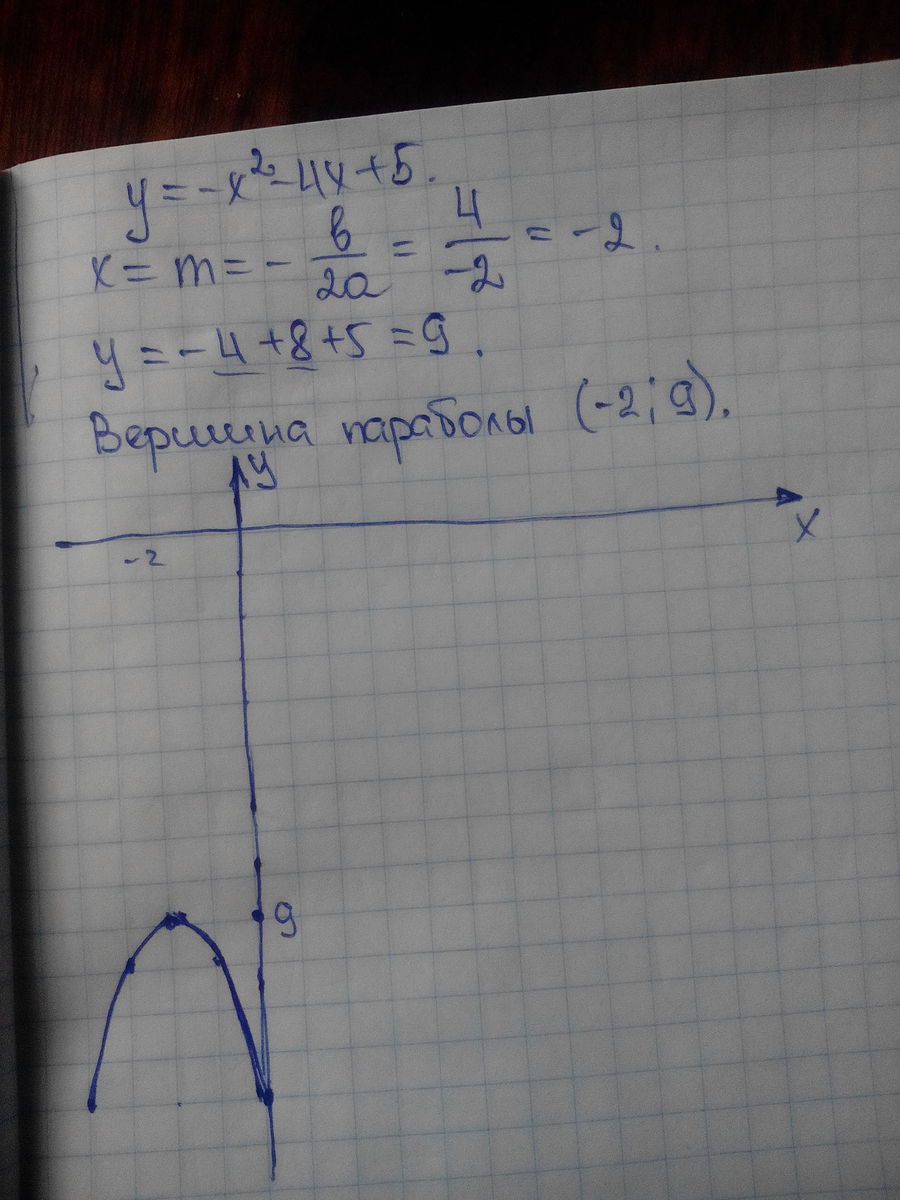 y = -x² - 4x + 5.
x = m = - в/2a = 4/-2 = -2.
y = -4 + 8 + 5 = 9.
Вершина параболы (-2; 9).
y
x
-2
9